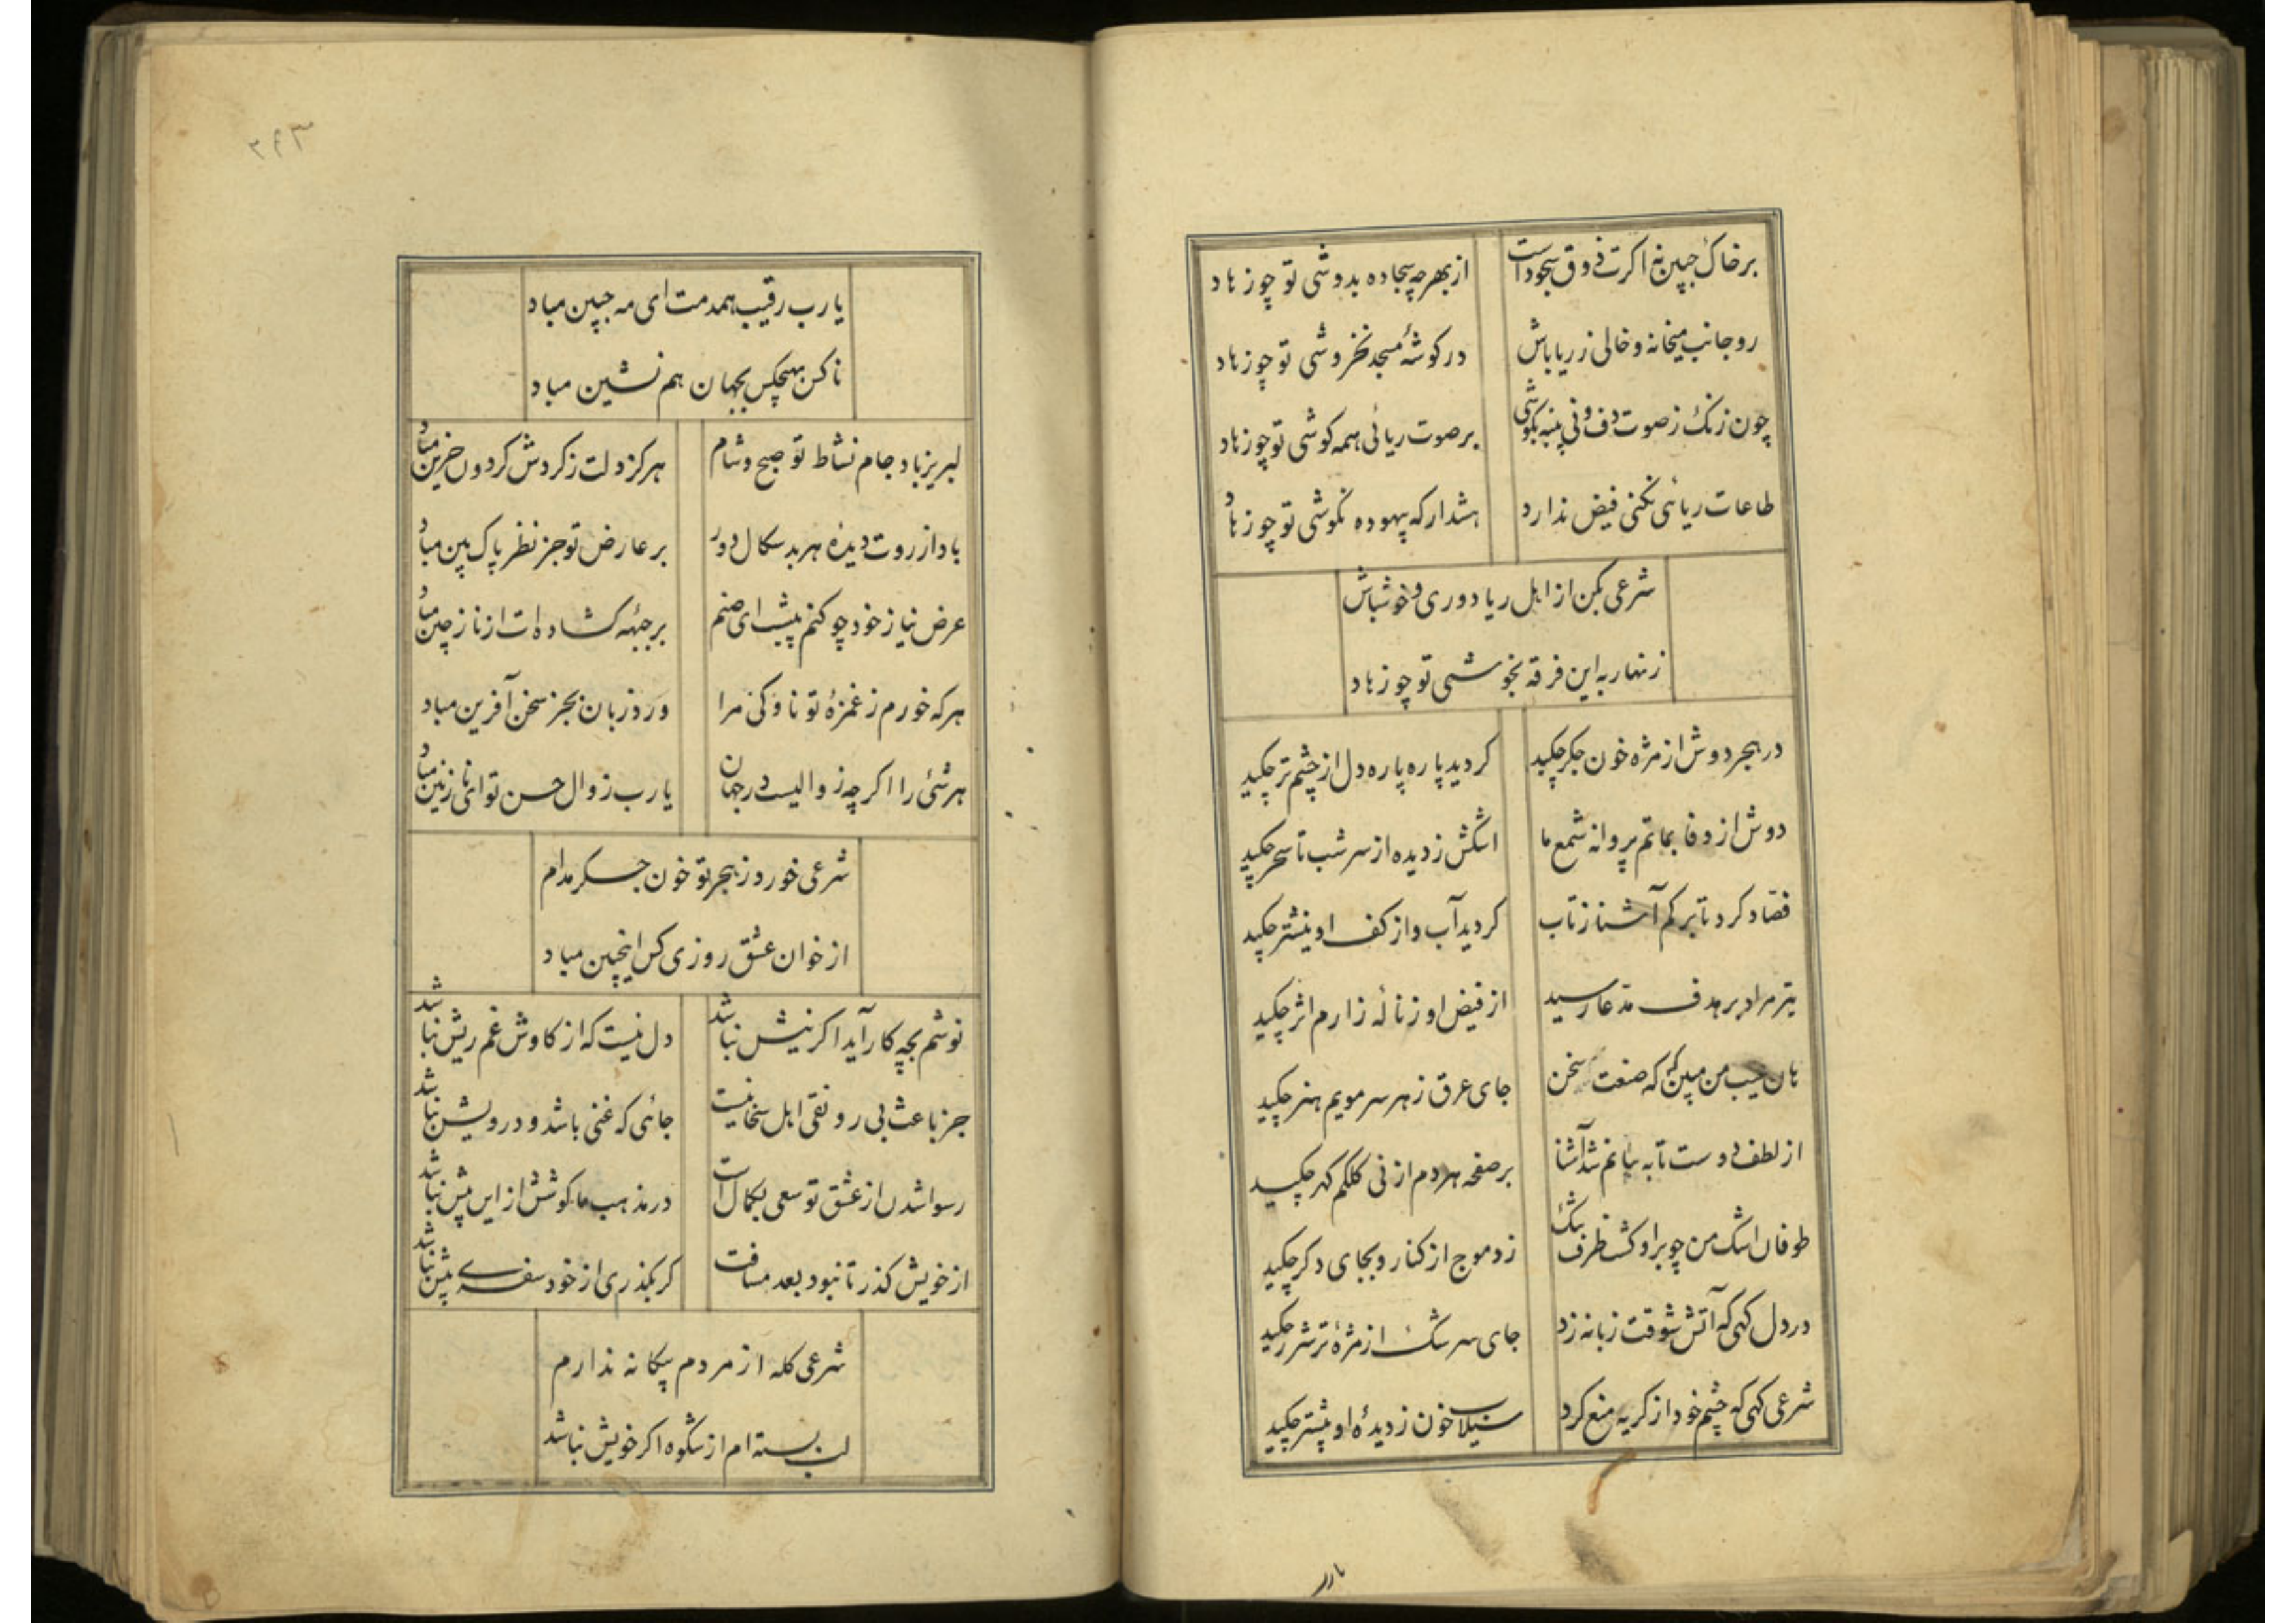 بر خاک جبین نه اکرت ذوق سجود است
از بهر چه سجاده بدوشی تو چو زهاد
رو جانب میخانه و خالی ز ریا باش
در کوشهٔ مسجد نخروشی تو چو زهاد
چون زنک ز صوت دف و نی پنبه بکوشی
بر صوت ریائی همه کوشی تو چو زهاد
طاعات ریائی نکنی فیض ندارد
هشدار که بیهوده نکوشی تو چو زهاد
شرعی بکن از اهل ریا دوری و خوشباش
زنهار به این فرقه بخوشی تو چو زهاد
در هجر دوش از مژه خون جکر چکید
کردید پاره پاره دل از چشم تر چکید
دوش از وفا بماتم پروانه شمع ما
اشکش ز دیده از سر شب تا سحر چکید
فصاد کرد تا برکم آشنا ز تاب
کردید آب و از کف او نیشتر چکید
تیر مراد بر هدف مدعا رسید
از فیض او ز نالهٔ زارم اثر چکید
هان عیب من مبین که که صنعت سخن
جای عرق ز هر سر مویم هنر چکید
از لطف دوست تا به بیانم شد آشنا
بر صفحه هر دم از نی کلکم کهر چکید
طوفان اشک من چو بر او کشت ظرف تنک
زد موج از کنار و بجای دکر چکید
در دل کهی که آتش شوقت زبانه زد
جای سرشک از مژهٔ تر شرر چکید
شرعی کهی که چشم خود از کریه منع کرد
سیلاب خون ز دیدهٔ او بیشتر چکید
یارب
۳۹۳
یارب رقیب همدمت ای مه جبین مباد
ناکس بهیچکس بجهان هم نشین مباد
لبریز باد جام نشاط تو صبح و شام
هرکز دلت ز کردش کردون حزین مباد
باد از روت دیدهٔ هر بد سکال دور
بر عارض تو جز نظر پاک بین مباد
عرض نیاز خود چو کنم پیشت ای صنم
بر جبههٔ کشاده ات از ناز چین مباد
هر که خورم ز غمزهٔ تو ناوکی مرا
ورد زبان بجز سخن آفرین مباد
هر شئی را اکر چه زوالیست در جهان
یارب زوال حسن تو ای نازنین مباد
شرعی خورد ز هجر تو خون جکر مدام
از خوان عشق روزی کس اینچنین مباد
نوشم بچه کار آید اکر نیش نباشد
دل نیست که از کاوش غم ریش نباشد
جز باعث بی رونقی اهل سخا نیست
جائی که غنی باشد و درویش نباشد
رسوا شدن از عشق تو سعی بکمال است
در مذهب ما کوشش از این بیش نباشد
از خویش کذر تا نبود بعد مسافت
کر بکذری از خود سفری بیش نباشد
شرعی کله از مردم بیکانه ندارم
لب بسته ام از شکوه اکر خویش نباشد